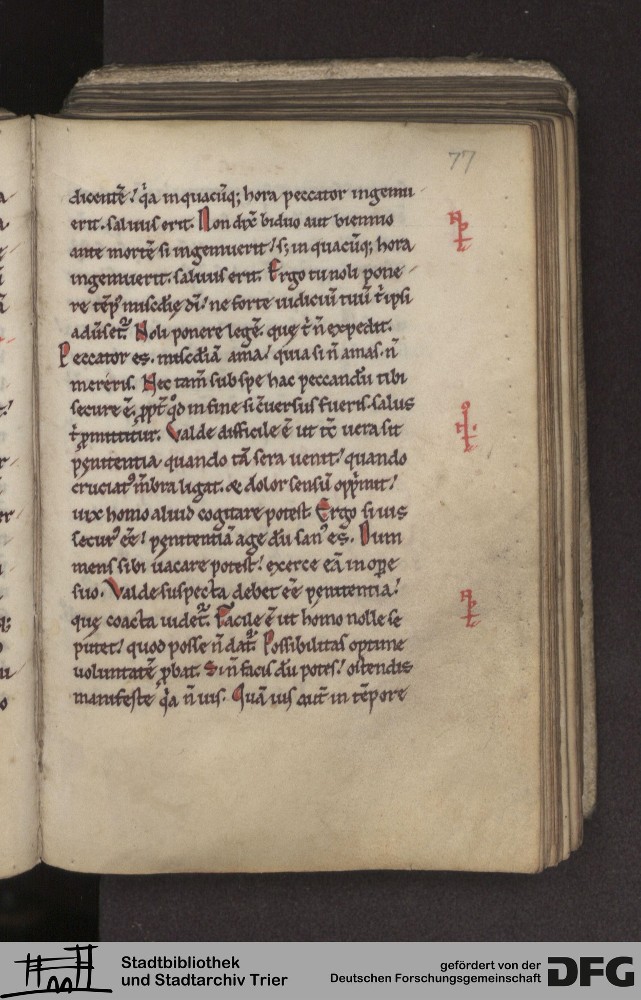 77
dicentē. q̇a in quacūq; hora peccator ingemu
erit. saluus erit. Non dix̄ biduo aut biennio
ante mortē si ingemuerit. s; in quacūq; hora
ingemuerit. saluus erit. Ergo tu noli pone
re tēp᷒ mīscd̄ie dī. ne forte iudiciū tuū t̄ ipsi
Noli ponere legē. quę t̄ n̄ expedit.
Peccator es. mīscdiā ama. quia si n̄ amas. n̄
mereris. Nec tam̄ sub spe hac peccandū tibi
secure ē. ꝓpt̄ qd̄ in fine si c̄uersus fueris. salus
t̄ p̱mittitur. Valde difficile ē ut tc̄ uera sit
pęnitentia. quando tā sera uenit. quando
cruciat᷒ mēbra ligat. & dolor sensū opp̄mit.
uix homo aliud cogitare potest. Ergo si uis
secur᷒ eē. penitentiā age dū san᷒ es. Dum
mens sibi uacare potest. exerce eā in oꝑe
suo. Valde suspecta debet eē penitentia.
quę coacta uidet᷒. Facile ē ut homo nolle se
putet. quod posse n̄ dat᷒. Possibilitas optime
uoluntatē ꝓbat. Si n̄ facis dū potes. ostendis
manifeste q̇a n̄ uis. Quā uis aut̄ in tēpore
Stadtbibliothek
und Stadtarchiv Trier
gefördert von der
Deutschen Forschungsgemeinschaft
DFG